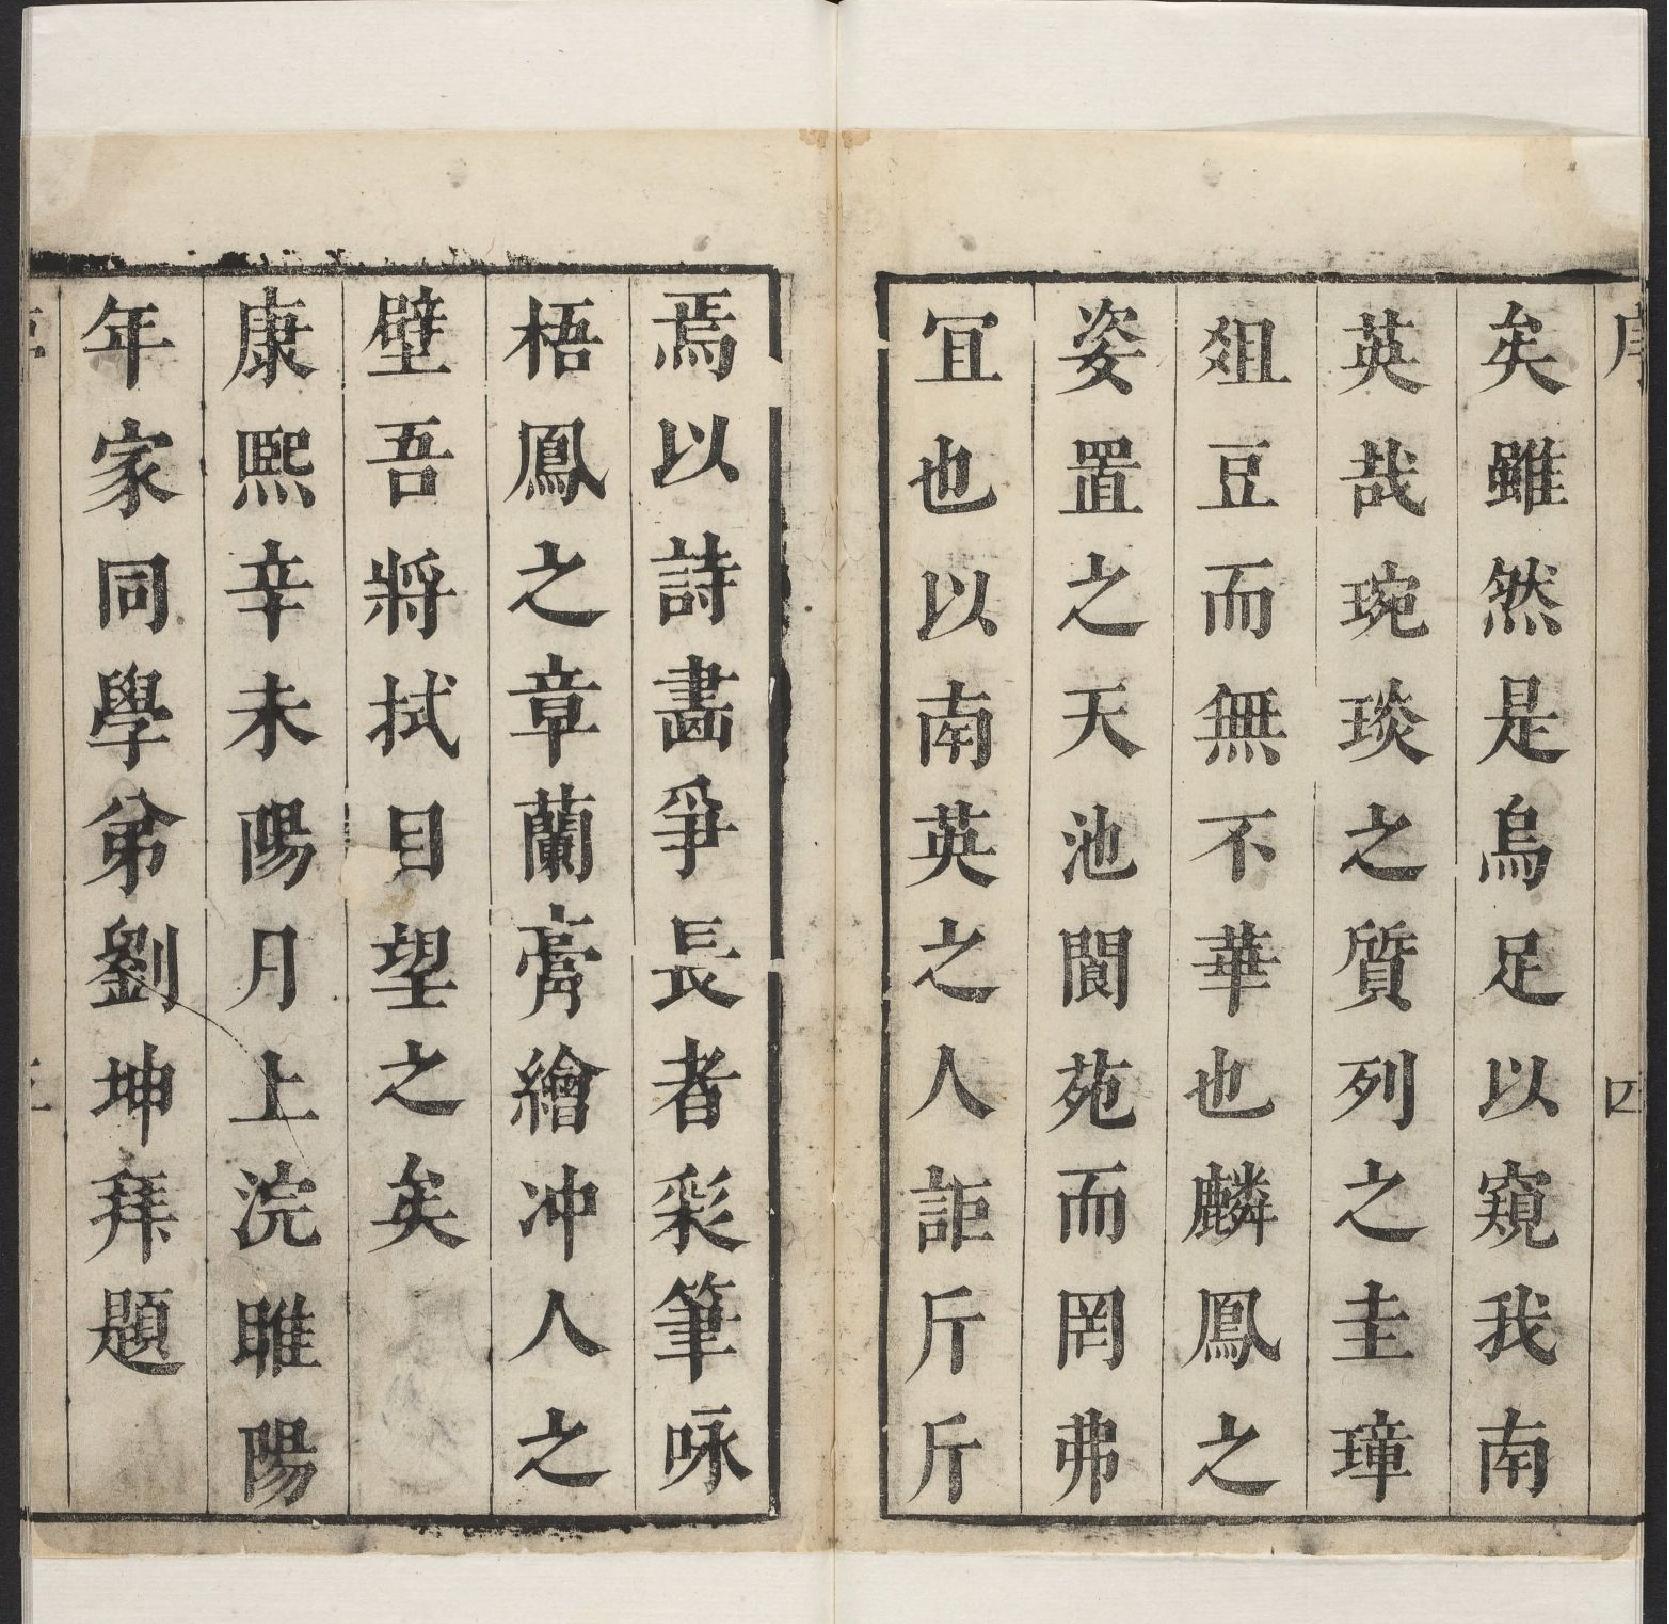 序 四
矣雖然是烏足以窺我南
英哉琬琰之質列之圭璋
爼豆而無不華也麟鳳之
姿置之天池閬苑而罔弗
冝也以南英之人詎斤斤
焉以詩畵爭長者彩筆咏
梧鳳之章蘭膏繪冲人之
壁吾將拭目望之矣
康熙辛未陽月上浣睢陽
年家同學弟劉坤拜題